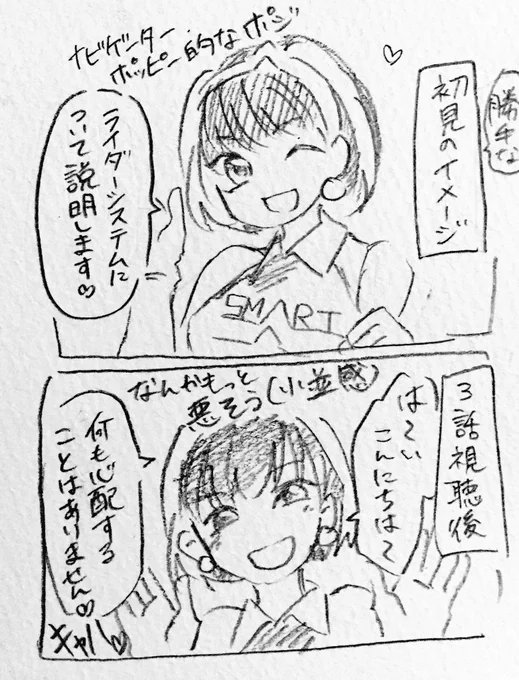 勝手な
初見のイメージ
ナビゲーター
ポッピー的なポジ
ライダーシステムに
ついて説明します♡
SMART
3話視聴後
なんかもっと
悪そう(小並感)
はぁい
こんにちは〜
何も心配する
ことはありません♡
キャハ♡